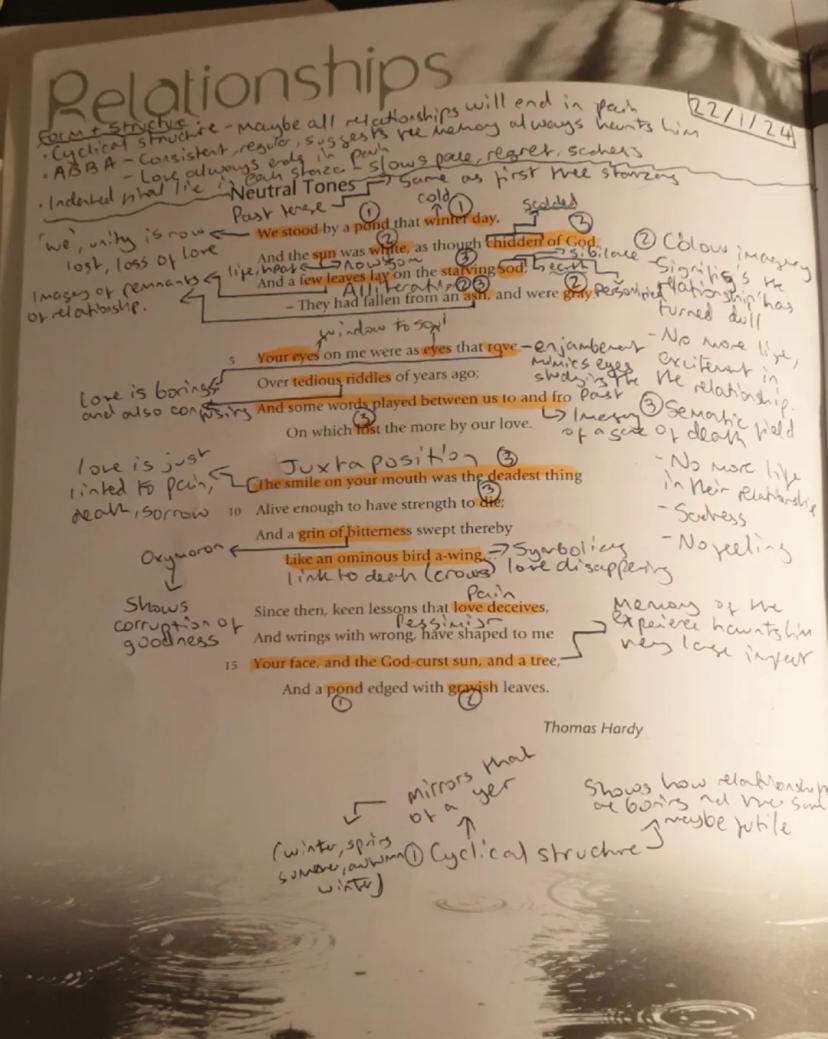 Relationships
22/1/24
Form + Structure:
• Cyclical structure - Maybe all relationships will end in pain
• ABBA - Consistent, regular, suggests the memory always haunts him
- Love always ends in pain
• Indented final line in each stanza - slows pace, regret, sadness
Neutral Tones → Same as first three stanzas
Past tense
cold
scolded
① ① ②
We stood by a pond that winter day,
'we', unity is now lost, loss of love
②
And the sun was white, as though chidden of God,
sibilance
life, heat
③
And a few leaves lay on the starving sod;
Imagery of remnants of relationship.
Alliteration
②③ ②
– They had fallen from an ash, and were gray.
Personified
② Colour imagery
- Signifies the relationship has turned dull
- No more life, excitement in the relationship.
window to soul
5 Your eyes on me were as eyes that rove
- enjambement mimics eyes studying the past
Over tedious riddles of years ago;
Love is boring and also confusing
And some words played between us to and fro
③
On which lost the more by our love.
↳ Imagery of a
③ Sematic field of death
- No more life in their relationship
- Sadness
- No feeling
Juxtaposition ③
love is just linked to pain, death, sorrow
The smile on your mouth was the deadest thing
③
10 Alive enough to have strength to die;
And a grin of bitterness swept thereby
Oxymoron
Like an ominous bird a-wing.
→ Symbolises love disappearing
link to death (crows)
Shows corruption of goodness
Pain
Since then, keen lessons that love deceives,
Pessimism
And wrings with wrong, have shaped to me
Memory of the experience haunts him very large impact
15 Your face, and the God-curst sun, and a tree,
And a pond edged with grayish leaves.
① ②
Thomas Hardy
Mirrors that of a yer
(winter, spring summer, autumn winter)
① Cyclical structure
Shows how relationships are boring and the same maybe futile